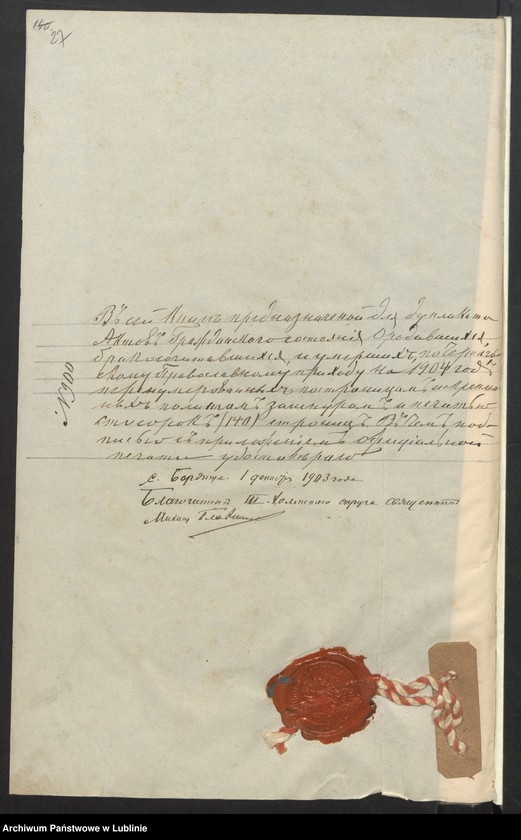 140.
27
№ 900
Въ сей Книгѣ предназначенной для дупликата
Актовъ Гражданского состоянія Родившихся,
бракосочитавшихся, и умершихъ, по
скому Православному приходу на 1904 годъ
перенумерованныхъ по страницамъ и скрѣплен
ныхъ по листамъ шнуромъ и печатью
сто сорокъ (140) страницъ. Въ чемъ под-
писью съ приложеніемъ оффиціальной
печати удостовѣряю
с. Бордище. 1 декабря 1903 года
Благочинный III Холмского округа священникъ
Михаил
Archiwum Państwowe w Lublinie